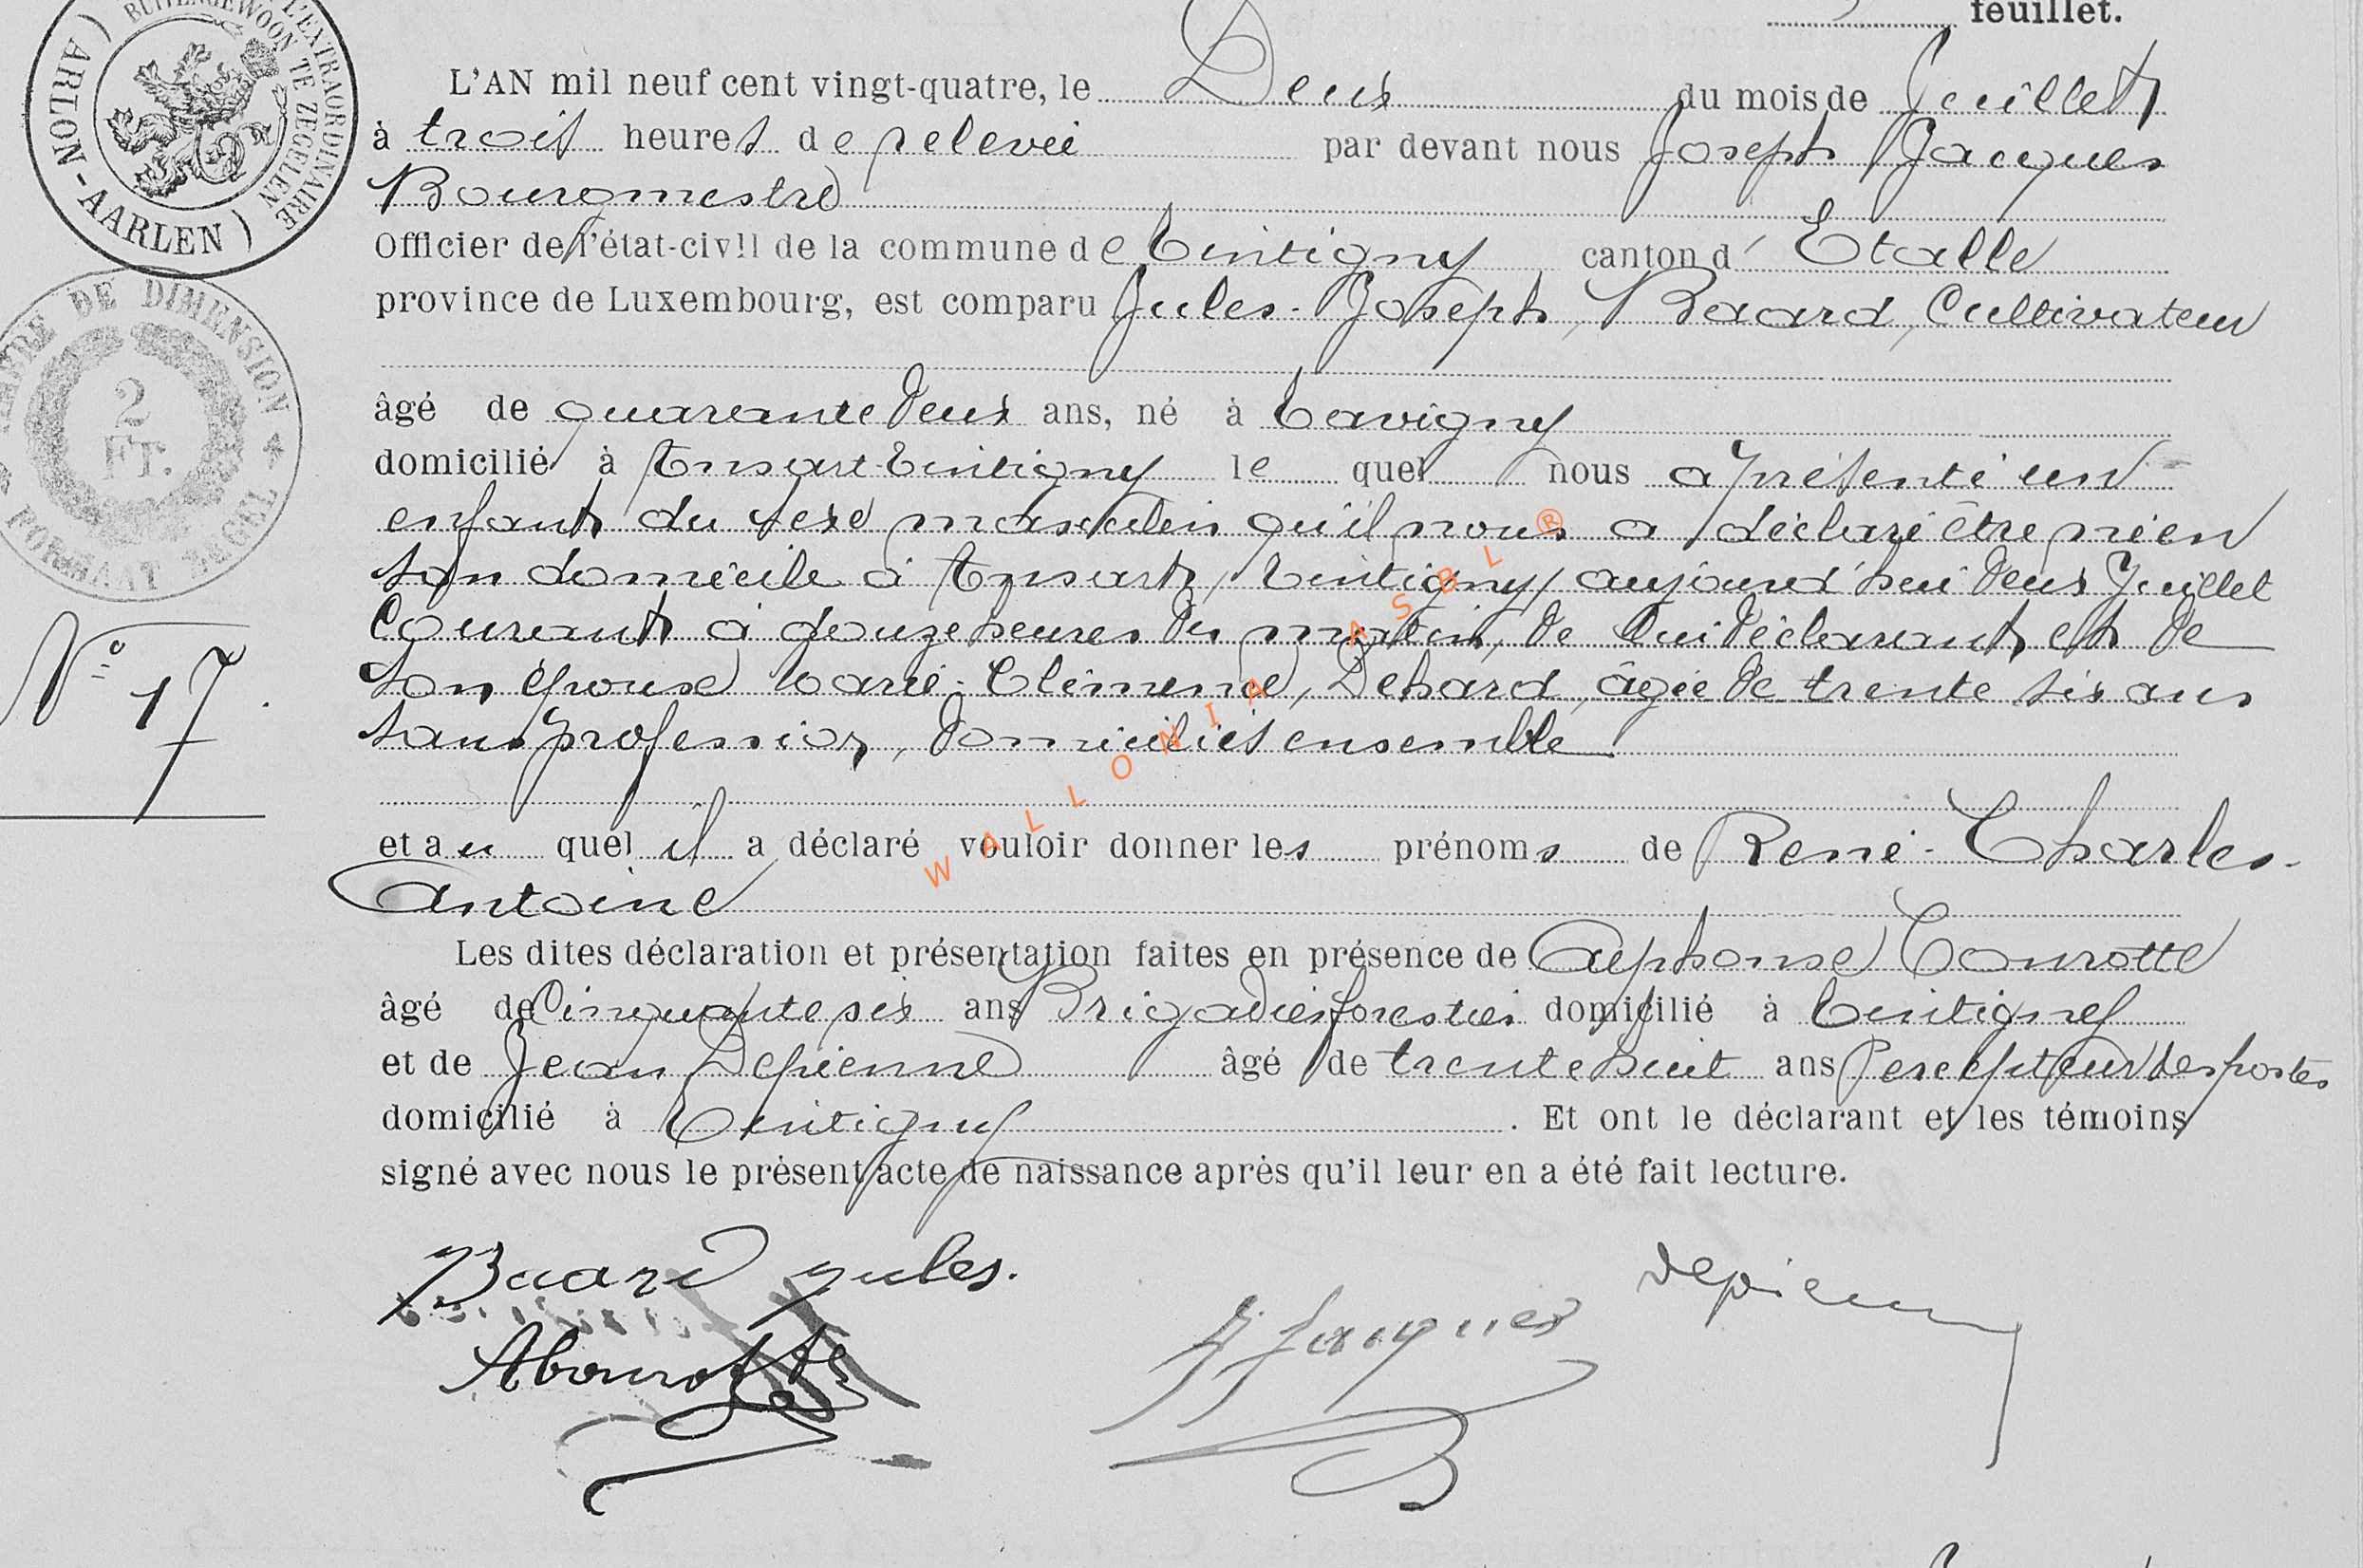 feuillet.
L'EXTRAORDINAIRE
BUITENGEWOON TE ZEGELEN
( ARLON - AARLEN )
L'AN mil neuf cent vingt-quatre, le Deux du mois de Juillet
à trois heures de relevée par devant nous Joseph Jacques
Bourgmestre
Officier de l'état-civil de la commune de Tintigny canton d'Etalle
province de Luxembourg, est comparu Jules-Joseph, Baard, Cultivateur
DE DIMENSION
2
FT.
âgé de quarante deux ans, né à Tavigny
domicilié à Ansart-Tintigny le quel nous a présenté un
enfant du sexe masculin qu'il nous a déclaré être né en
son domicile à Ansart, Tintigny, aujourd'hui deux Juillet
Courant à douze heures du matin, de lui déclarant et de
son épouse Marie-Clémence, Dehard, âgée de trente six ans
sans profession, domiciliés ensemble
N° 17.
et au quel il a déclaré vouloir donner les prénoms de René-Charles-
Antoine
Les dites déclaration et présentation faites en présence de Alphonse Courotte
âgé de Cinquante six ans Brigadier forestier domicilié à Tintigny
et de Jean Depienne âgé de trente huit ans Percepteur des postes
domicilié à Tintigny. Et ont le déclarant et les témoins
signé avec nous le présent acte de naissance après qu'il leur en a été fait lecture.
Baard Jules.
Depienne
J Jacques
WALLONIA ASBL ®